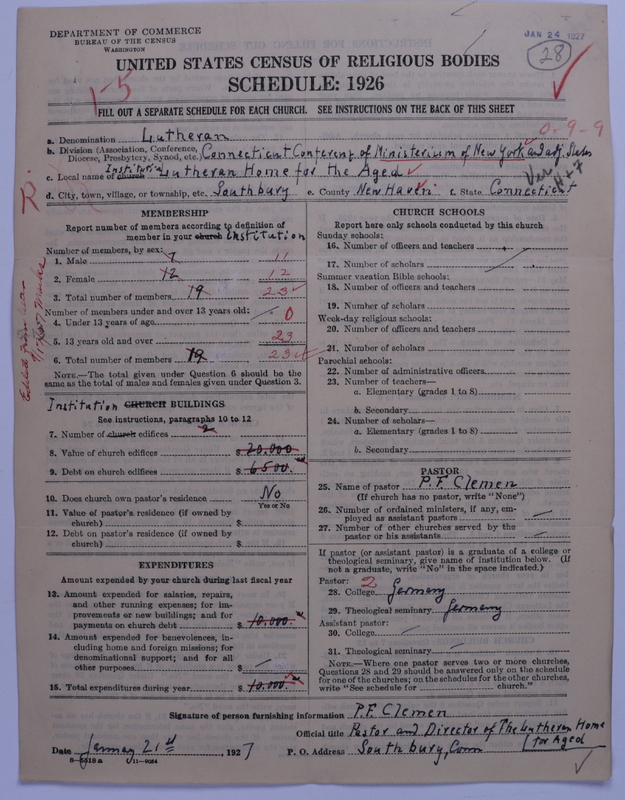 DEPARTMENT OF COMMERCE
BUREAU OF THE CENSUS
WASHINGTON
JAN 24 1927
28
UNITED STATES CENSUS OF RELIGIOUS BODIES
SCHEDULE: 1926
1-5
FILL OUT A SEPARATE SCHEDULE FOR EACH CHURCH. SEE INSTRUCTIONS ON THE BACK OF THIS SHEET
0-9-9
a. Denomination Lutheran
b. Division (Association, Conference, Diocese, Presbytery, Synod, etc.) Connecticut Conference of Ministerium of New York and adj. States
c. Local name of church Institution Lutheran Home for the Aged
d. City, town, village, or township, etc. Southbury e. County New Haven f. State Connecticut
MEMBERSHIP
Report number of members according to definition of
member in your church Institution
Number of members, by sex:
1. Male 7 11
2. Female 12 12
3. Total number of members 19 23
Number of members under and over 13 years old:
4. Under 13 years of age 0
5. 13 years old and over 23
6. Total number of members 19 23
NOTE.—The total given under Question 6 should be the
same as the total of males and females given under Question 3.
Institution CHURCH BUILDINGS
See instructions, paragraphs 10 to 12
7. Number of church edifices 2
8. Value of church edifices $ 20.000
9. Debt on church edifices $ 6500
10. Does church own pastor's residence No
Yes or No
11. Value of pastor's residence (if owned by
church) $
12. Debt on pastor's residence (if owned by
church) $
EXPENDITURES
Amount expended by your church during last fiscal year
13. Amount expended for salaries, repairs,
and other running expenses; for im-
provements or new buildings; and for
payments on church debt $ 10.000
14. Amount expended for benevolences, in-
cluding home and foreign missions; for
denominational support; and for all
other purposes $
15. Total expenditures during year $ 10.000
CHURCH SCHOOLS
Report here only schools conducted by this church
Sunday schools:
16. Number of officers and teachers
17. Number of scholars
Summer vacation Bible schools:
18. Number of officers and teachers
19. Number of scholars
Week-day religious schools:
20. Number of officers and teachers
21. Number of scholars
Parochial schools:
22. Number of administrative officers
23. Number of teachers—
a. Elementary (grades 1 to 8)
b. Secondary
24. Number of scholars—
a. Elementary (grades 1 to 8)
b. Secondary
PASTOR
25. Name of pastor P. F. Clemen
(If church has no pastor, write "None")
26. Number of ordained ministers, if any, em-
ployed as assistant pastors
27. Number of other churches served by the
pastor or his assistants
If pastor (or assistant pastor) is a graduate of a college or
theological seminary, give name of institution below. (If
not a graduate, write "No" in the space indicated.)
Pastor: 2
28. College Germany
29. Theological seminary Germany
Assistant pastor:
30. College
31. Theological seminary
NOTE.—Where one pastor serves two or more churches,
Questions 28 and 29 should be answered only on the schedule
for one of the churches; on the schedules for the other churches,
write "See schedule for church."
Signature of person furnishing information P.F. Clemen
Official title Pastor and Director of The Lutheran Home
for Aged
Date January 21st, 1927 P. O. Address Southbury, Conn
8-5518 a 11-9054